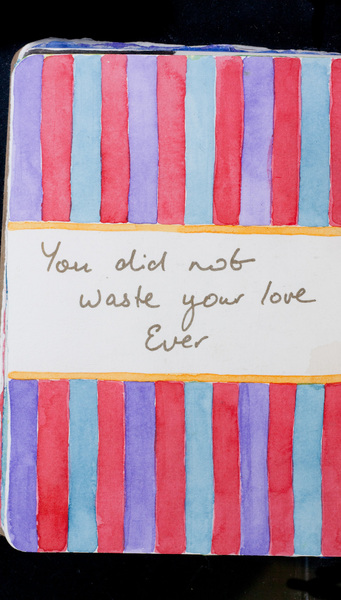 You did not
waste your love
Ever